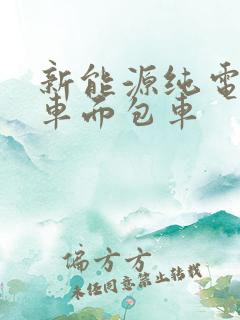 新能源纯電
車而包车
偏方方
未经同意禁止转载